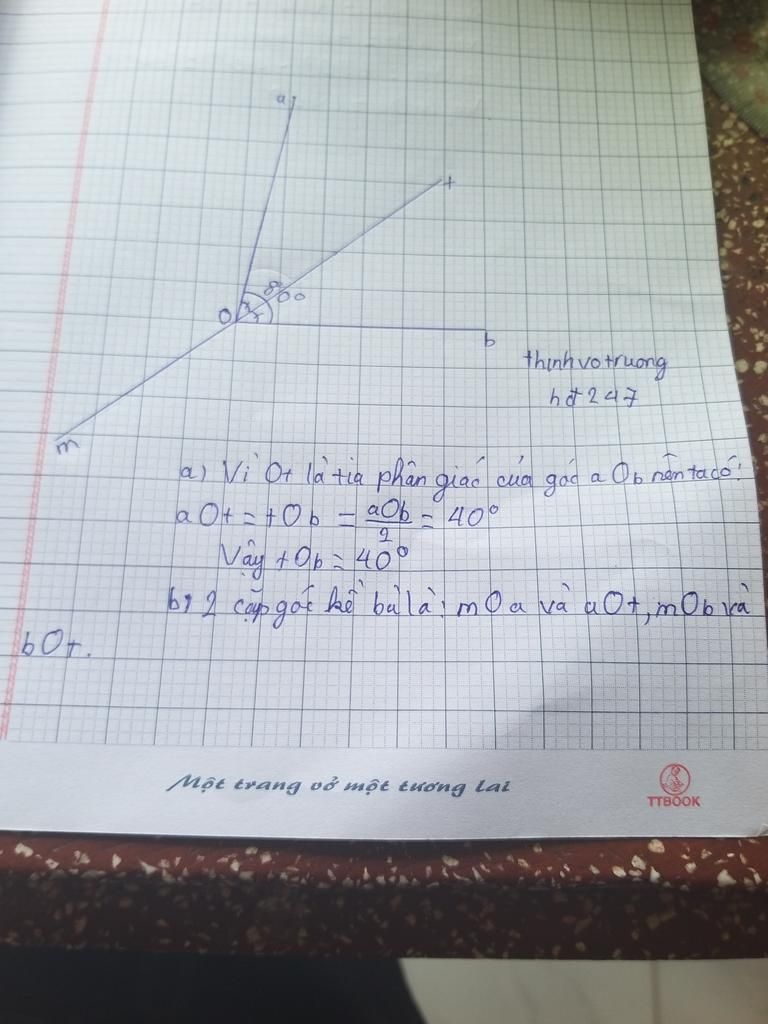 a
t
80°
O
b
m
thinhvotruong
hđ247
a) Vì Ot là tia phân giác của góc aOb nên ta có:
aOt = tOb = aOb/2 = 40°
Vậy tOb = 40°
b, 2 cặp góc kề bù là: mOa và aOt, mOb và
bOt.
Một trang vở một tương lai
TTBOOK